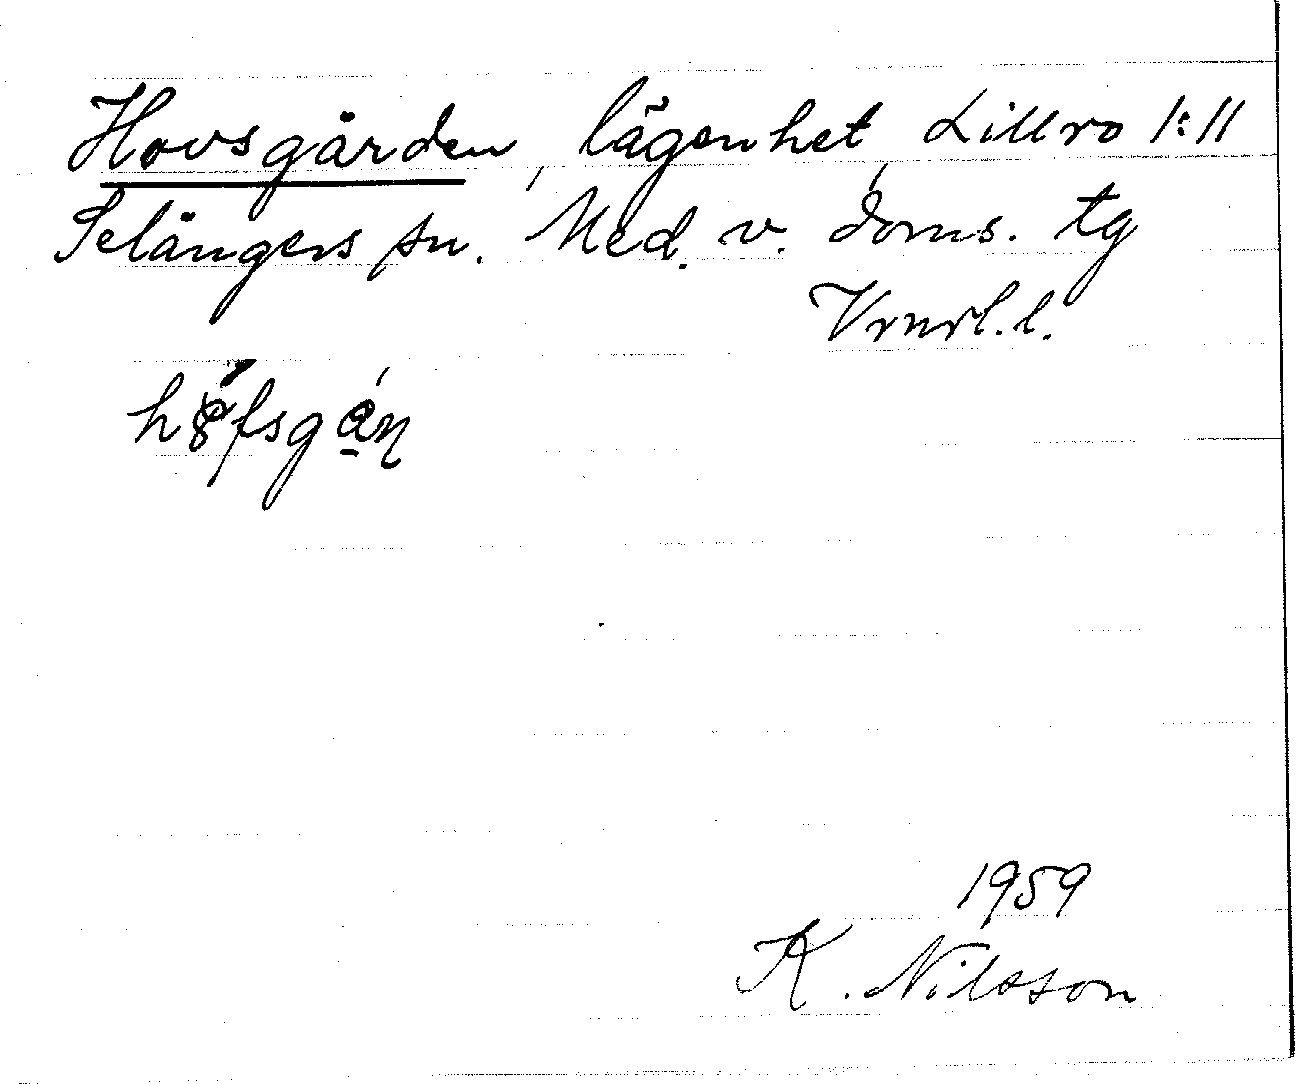 Hovsgården, lägenhet, Lillro 1:11
Selångers sn. Med. v. doms. tg
Vrnrl. l.
1959
K. Nilsson